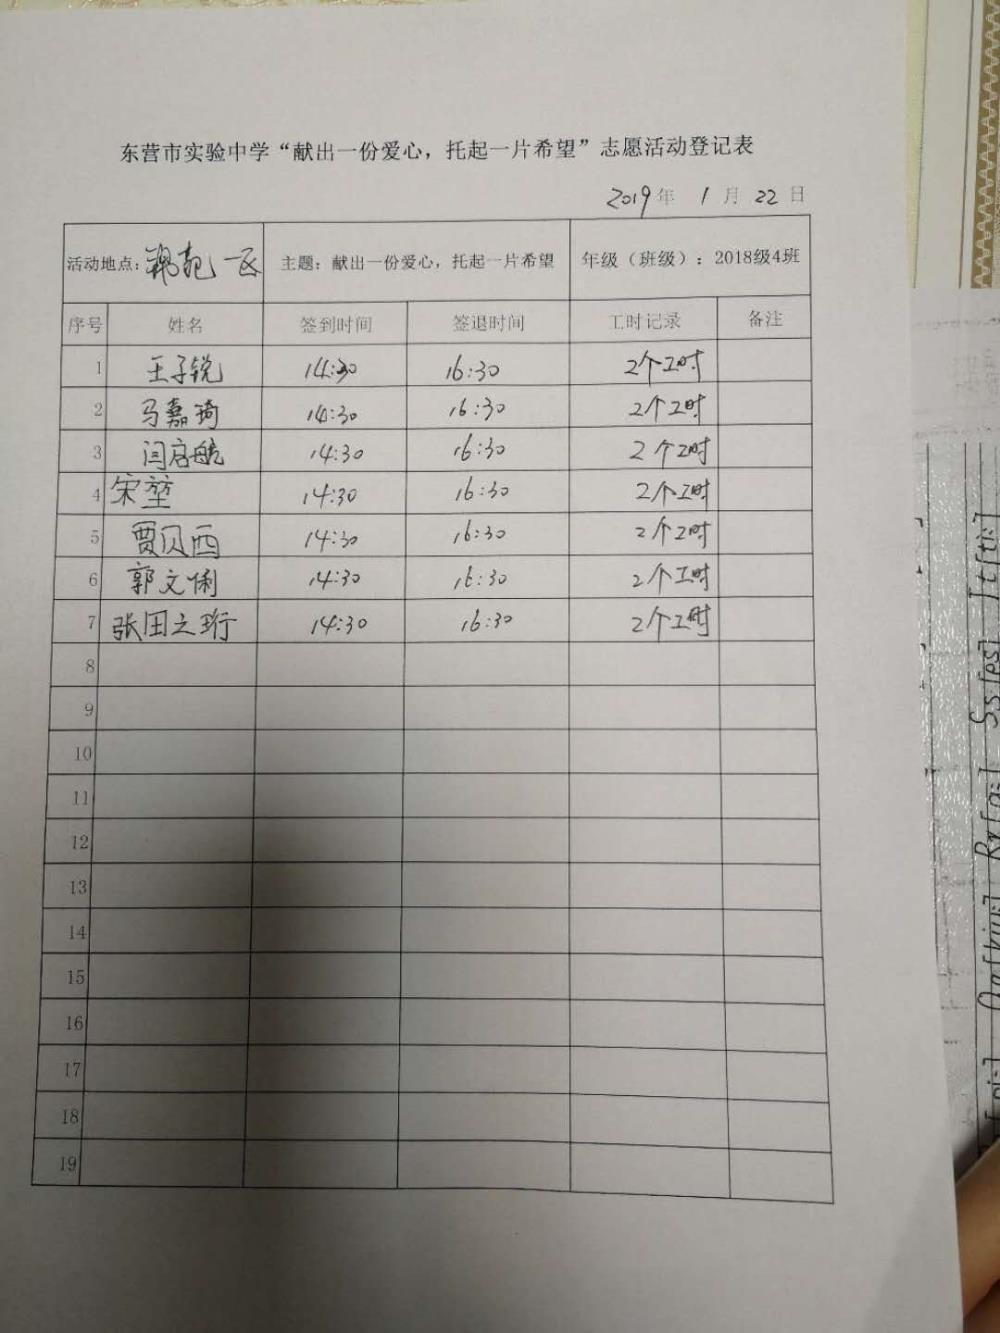 东营市实验中学“献出一份爱心，托起一片希望”志愿活动登记表
2019年 1月 22日
活动地点： 一区 主题：献出一份爱心，托起一片希望 年级（班级）：2018级4班
序号 姓名 签到时间 签退时间 工时记录 备注
1 王子锐 14:30 16:30 2个工时
2 马嘉琦 14:30 16:30 2个工时
3 闫启航 14:30 16:30 2个工时
4 宋堃 14:30 16:30 2个工时
5 贾贝西 14:30 16:30 2个工时
6 郭文俐 14:30 16:30 2个工时
7 张田之珩 14:30 16:30 2个工时
8
9
10
11
12
13
14
15
16
17
18
19